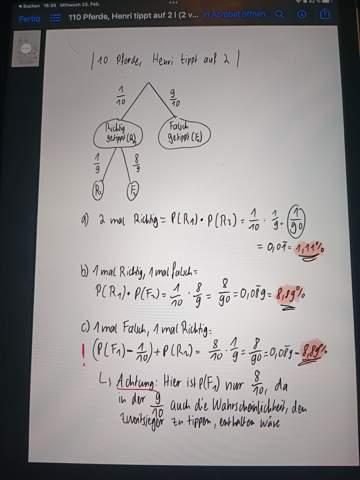 Suchen 16:35 Mittwoch 23. Feb.
Fertig 110 Pferde, Henri tippt auf 2 l (2 v... In Acrobat öffnen
| 10 Pferde, Henri tippt auf 2 |
1/10 9/10
Richtig getippt (R₁) Falsch getippt (F₁)
1/9 8/9
R₂ F₂
a) 2 mal Richtig = P(R₁) · P(R₂) = 1/10 · 1/9 = 1/90
= 0,01̅ = 1,11%
b) 1 mal Richtig, 1 mal falsch =
P(R₁) · P(F₂) = 1/10 · 8/9 = 8/90 = 0,089 = 8,89%
c) 1 mal Falsch, 1 mal Richtig:
! (P(F₁) - 1/10) + P(R₂) = 8/10 · 1/9 = 8/90 = 0,089 = 8,89%
↳ Achtung: Hier ist P(F₁) nur 8/10, da
in der 9/10 auch die Wahrscheinlichkeit, den
Zweitsieger zu tippen, enthalten wäre